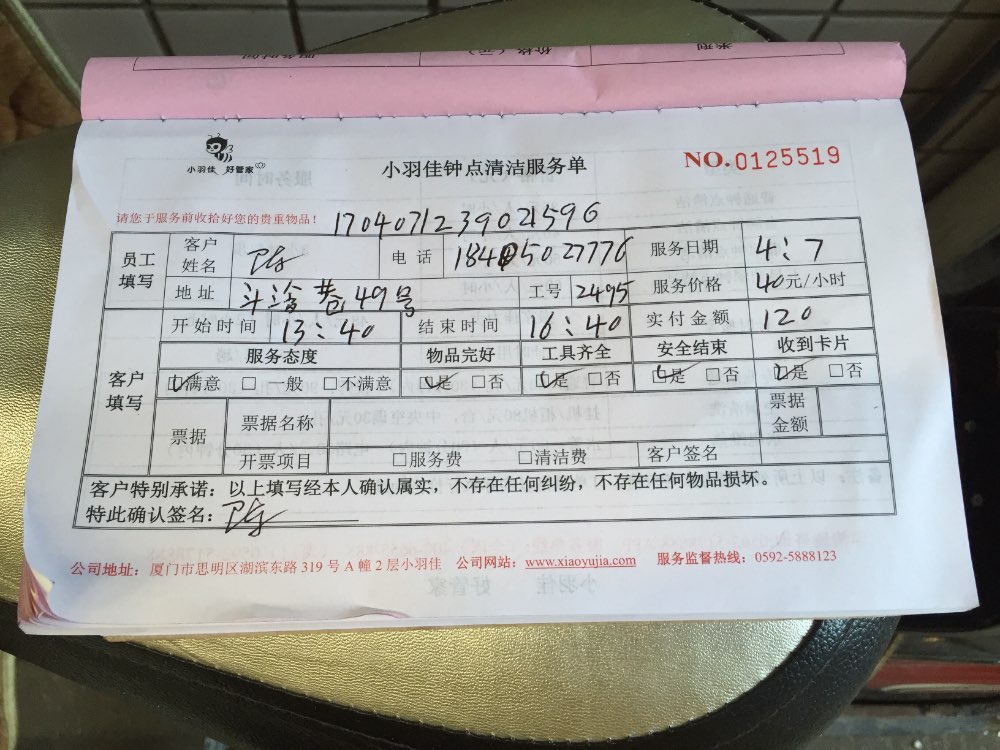 类型 价格(元) 服务时间
小羽佳 好管家
小羽佳钟点清洁服务单
NO.0125519
请您于服务前收拾好您的贵重物品!
1704071239021596
员工填写 客户姓名 陈 电话 服务日期 4:7
地址 49号 工号 2495 服务价格 40元/小时
客户填写 开始时间 13:40 结束时间 16:40 实付金额 120
服务态度 物品完好 工具齐全 安全结束 收到卡片
☑满意 □一般 □不满意 ☑是 □否 ☑是 □否 ☑是 □否 ☑是 □否
票据 票据名称 票据金额
开票项目 □服务费 □清洁费 客户签名
客户特别承诺:以上填写经本人确认属实,不存在任何纠纷,不存在任何物品损坏。
特此确认签名:陈
公司地址:厦门市思明区湖滨东路 319 号 A 幢 2 层小羽佳 公司网站:www.xiaoyujia.com 服务监督热线:0592-5888123